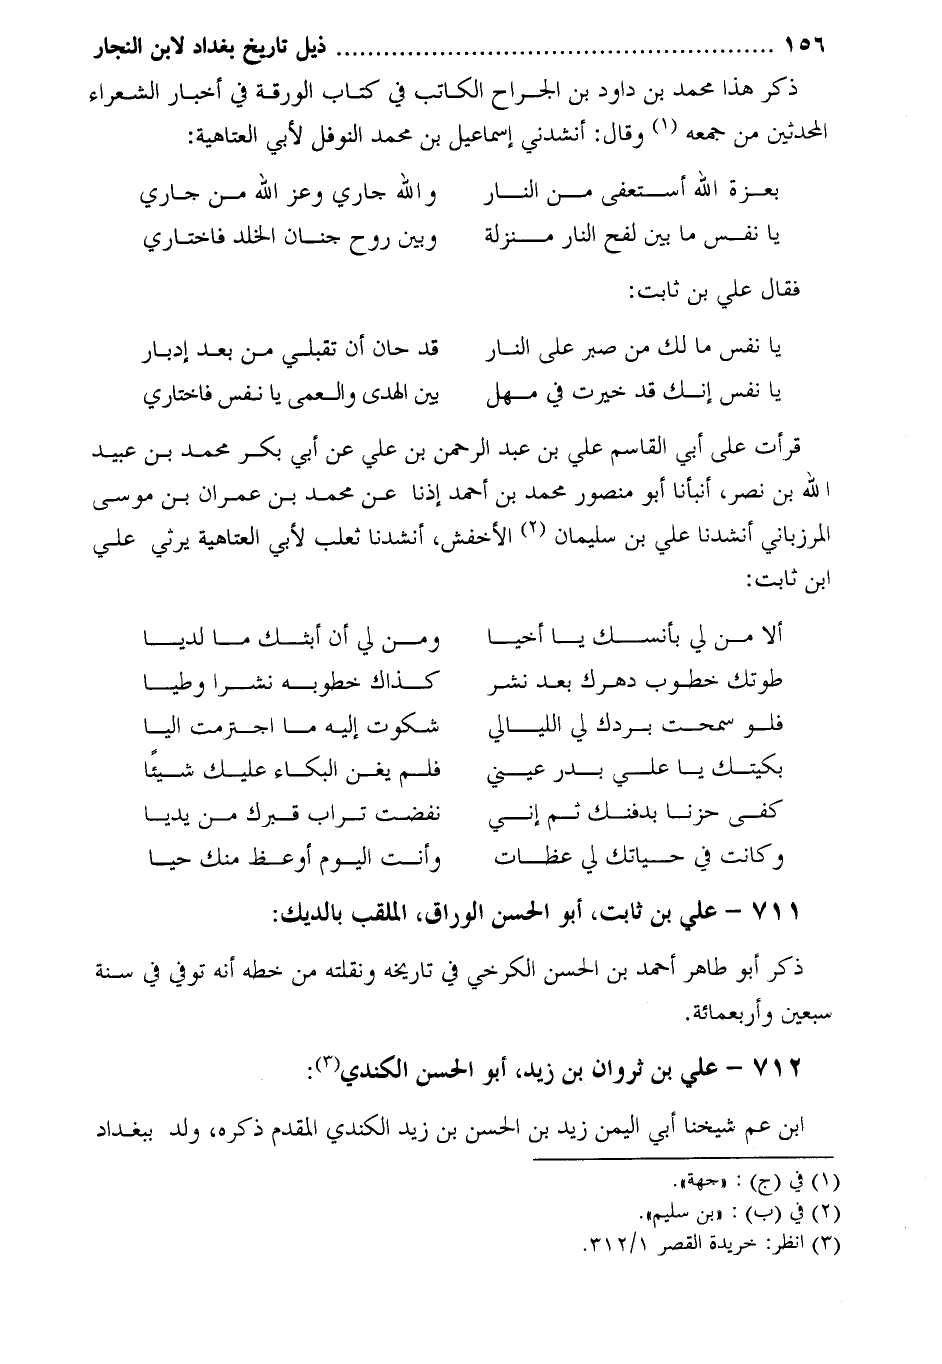 ١٥٦ ........................................................ ذيل تاريخ بغداد لابن النجار
ذكر هذا محمد بن داود بن الجراح الكاتب في كتاب الورقة في أخبار الشعراء
المحدثين من جمعه (١) وقال: أنشدني إسماعيل بن محمد النوفل لأبي العتاهية:
بعزة الله أستعفى من النار    والله جاري وعز الله من جاري
يا نفس ما بين لفح النار منزلة    وبين روح جنان الخلد فاختاري
فقال علي بن ثابت:
يا نفس ما لك من صبر على النار    قد حان أن تقبلي من بعد إدبار
يا نفس إنك قد خيرت في مهل    بين الهدى والعمى يا نفس فاختاري
قرأت على أبي القاسم علي بن عبد الرحمن بن علي عن أبي بكر محمد بن عبيد
الله بن نصر، أنبأنا أبو منصور محمد بن أحمد إذنا عن محمد بن عمران بن موسى
المرزباني أنشدنا علي بن سليمان (٢) الأخفش، أنشدنا ثعلب لأبي العتاهية يرثي علي
ابن ثابت:
ألا من لي بأنسك يا أخيا    ومن لي أن أبثك ما لديا
طوتك خطوب دهرك بعد نشر    كذاك خطوبه نشرا وطيا
فلو سمحت بردك لي الليالي    شكوت إليه ما اجترمت اليا
بكيتك يا علي بدر عيني    فلم يغن البكاء عليك شيئًا
كفى حزنا بدفنك ثم إني    نفضت تراب قبرك من يديا
وكانت في حياتك لي عظات    وأنت اليوم أوعظ منك حيا
٧١١ – علي بن ثابت، أبو الحسن الوراق، الملقب بالديك:
ذكر أبو طاهر أحمد بن الحسن الكرخي في تاريخه ونقلته من خطه أنه توفي في سنة
سبعين وأربعمائة.
٧١٢ – علي بن ثروان بن زيد، أبو الحسن الكندي(٣):
ابن عم شيخنا أبي اليمن زيد بن الحسن بن زيد الكندي المقدم ذكره، ولد ببغداد
(١) في (ج) : «جهة».
(٢) في (ب) : «بن سليم».
(٣) انظر: خريدة القصر ٣١٢/١.